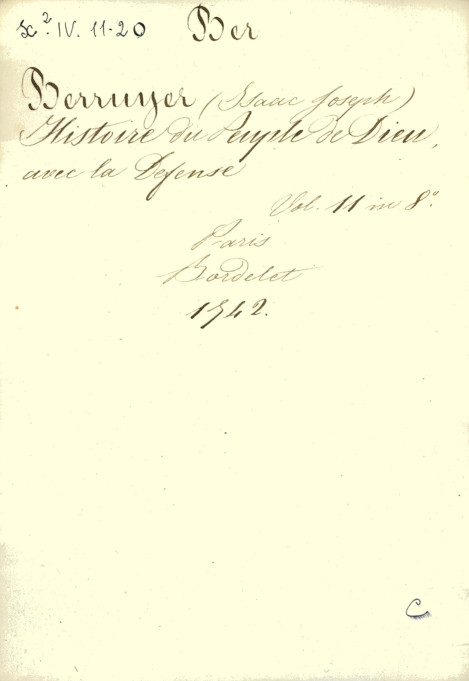 Sc². IV. 11-20 Ber
Berruyer (Isaac Joseph)
Histoire du Peuple de Dieu,
avec la Defense
Vol. 11 in 8°.
Paris
Bordelet
1742.
C